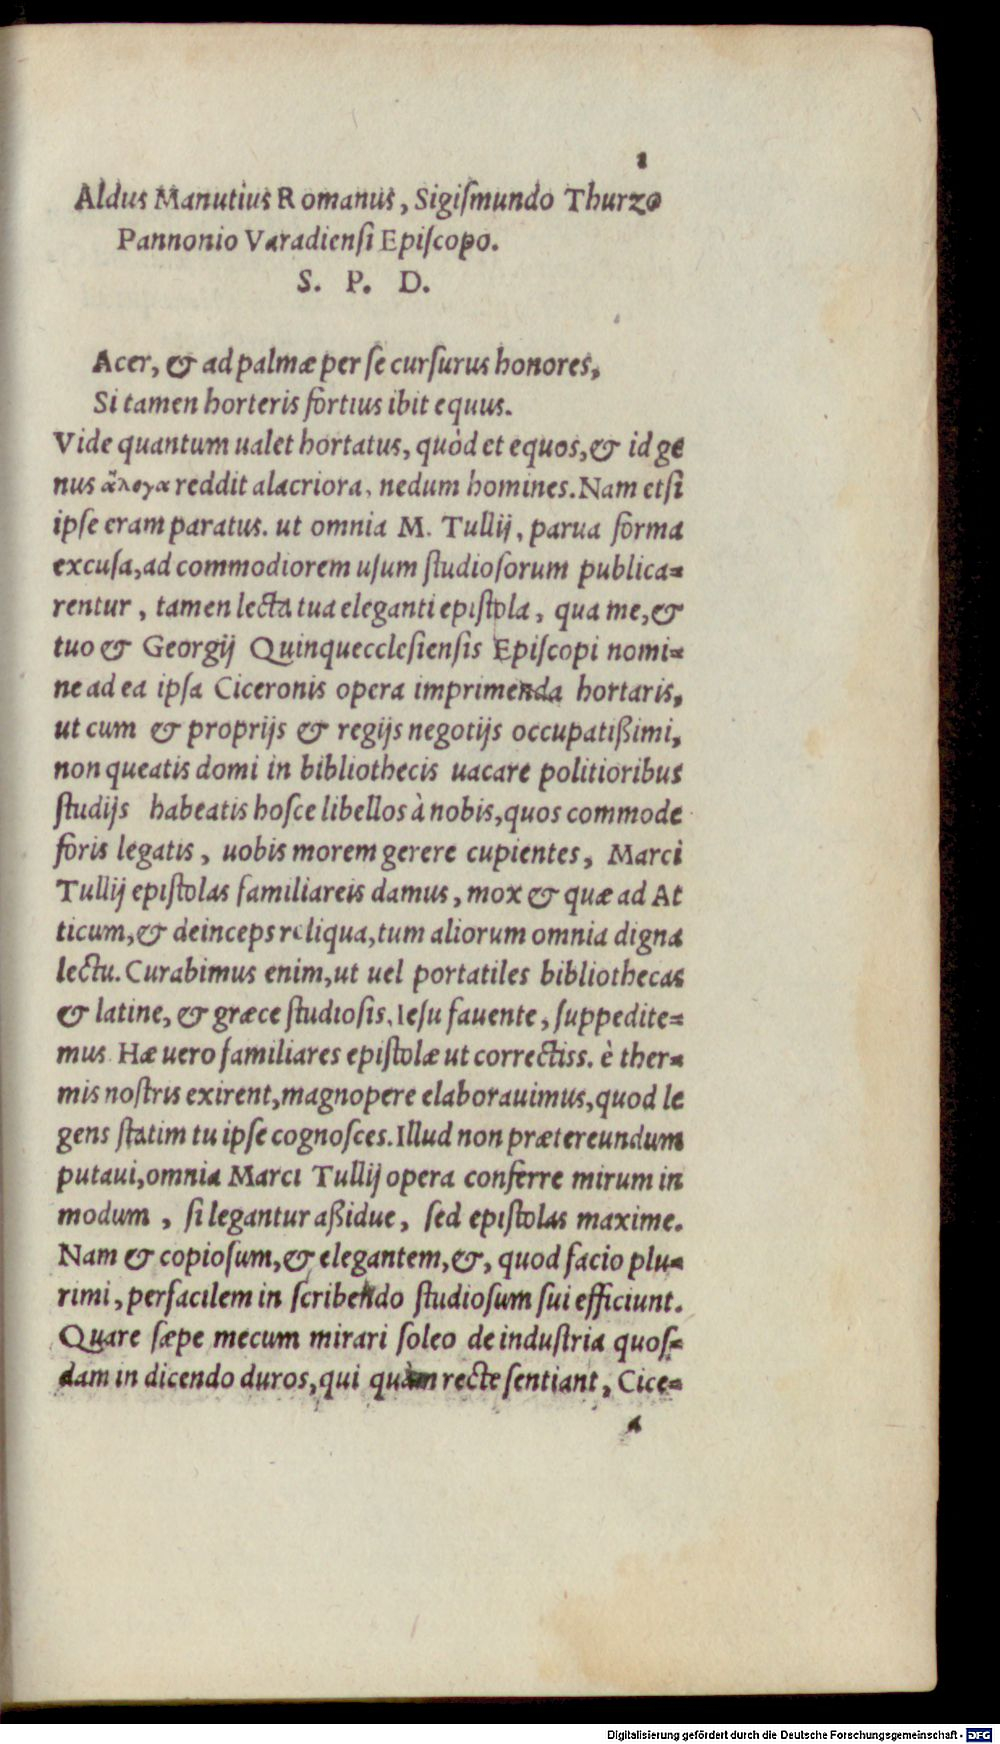 1
Aldus Manutius Romanus, Sigiſmundo Thurzo
Pannonio Varadienſi Epiſcopo.
S. P. D.
Acer, & ad palmæ per ſe curſurus honores,
Si tamen horteris fortius ibit equus.
Vide quantum ualet hortatus, quòd et equos, & id ge
nus ἄλογα reddit alacriora, nedum homines. Nam etſi
ipſe eram paratus. ut omnia M. Tullij, parua forma
excuſa, ad commodiorem uſum ſtudioſorum publica-
rentur, tamen lecta tua eleganti epiſtola, qua me, &
tuo & Georgij Quinquecclesienſis Epiſcopi nomi-
ne ad ea ipſa Ciceronis opera imprimenda hortaris,
ut cum & proprijs & regijs negotijs occupatißimi,
non queatis domi in bibliothecis uacare politioribus
ſtudijs habeatis hoſce libellos à nobis, quos commode
foris legatis, uobis morem gerere cupientes, Marci
Tullij epiſtolas familiareis damus, mox & quæ ad At
ticum, & deinceps reliqua, tum aliorum omnia digna
lectu. Curabimus enim, ut uel portatiles bibliothecas
& latine, & græce ſtudioſis, Ieſu fauente, ſuppedite-
mus. Hæ uero familiares epiſtolæ ut correctiss. è ther-
mis noſtris exirent, magnopere elaborauimus, quod le
gens ſtatim tu ipſe cognoſces. Illud non prætereundum
putaui, omnia Marci Tullij opera conferre mirum in
modum, ſi legantur aßidue, ſed epiſtolas maxime.
Nam & copioſum, & elegantem, &, quod facio plu-
rimi, perfacilem in ſcribendo ſtudioſum ſui efficiunt.
Quare ſæpe mecum mirari ſoleo de induſtria quoſ-
dam in dicendo duros, qui quàm recte ſentiant, Cice-
a
Digitalisierung gefördert durch die Deutsche Forschungsgemeinschaft - DFG